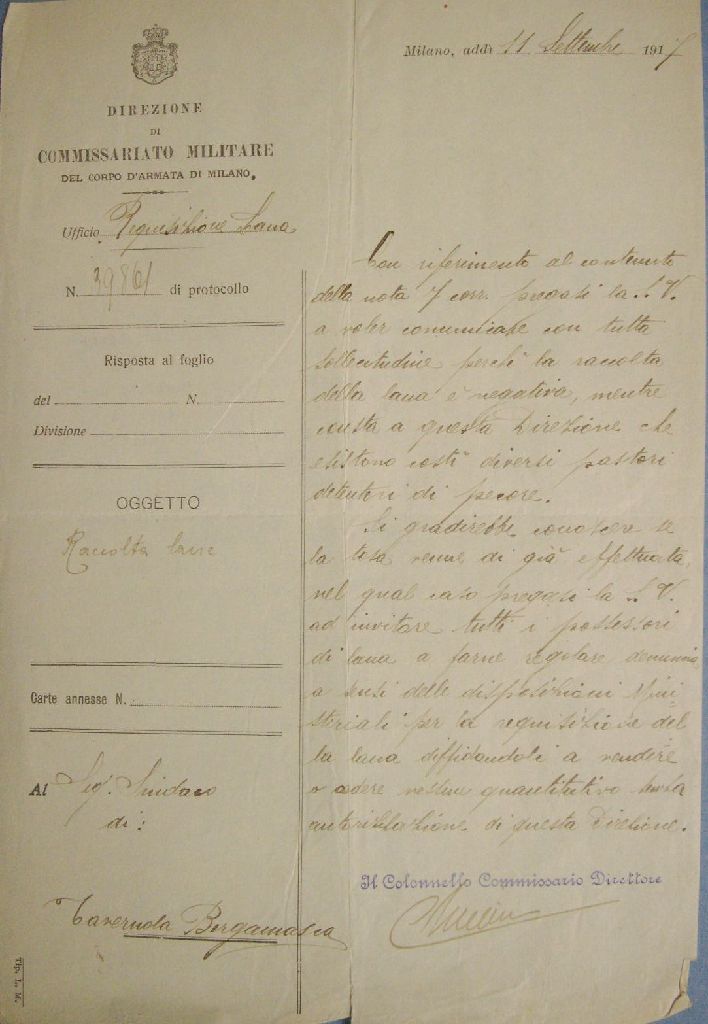 DIREZIONE
DI
COMMISSARIATO MILITARE
DEL CORPO D'ARMATA DI MILANO.
Ufficio Requisizione Lana
N. 39861 di protocollo
Risposta al foglio
del N.
Divisione
OGGETTO
Raccolta lane
Carte annesse N.
Al Sig. Sindaco
di:
Tavernola Bergamasca
Tip. L. M.
Milano, addì 11 Settembre 1917
Con riferimento al contenuto
della nota 7 corr. pregasi la S. V.
a voler comunicare con tutta
sollecitudine perchè la raccolta
della lana è negativa, mentre
consta a questa Direzione che
esistono costì diversi pastori
detentori di pecore.
Si gradirebbe conoscere se
la tosa venne di già effettuata,
nel qual caso pregasi la S. V.
ad invitare tutti i possessori
di lana a farne regolare denuncia
a sensi delle disposizioni Mini=
steriali per la requisizione del
la lana diffidandoli a vendere
o cedere nessun quantitativo senza
autorizzazione di questa Direzione.
Il Colonnello Commissario Direttore